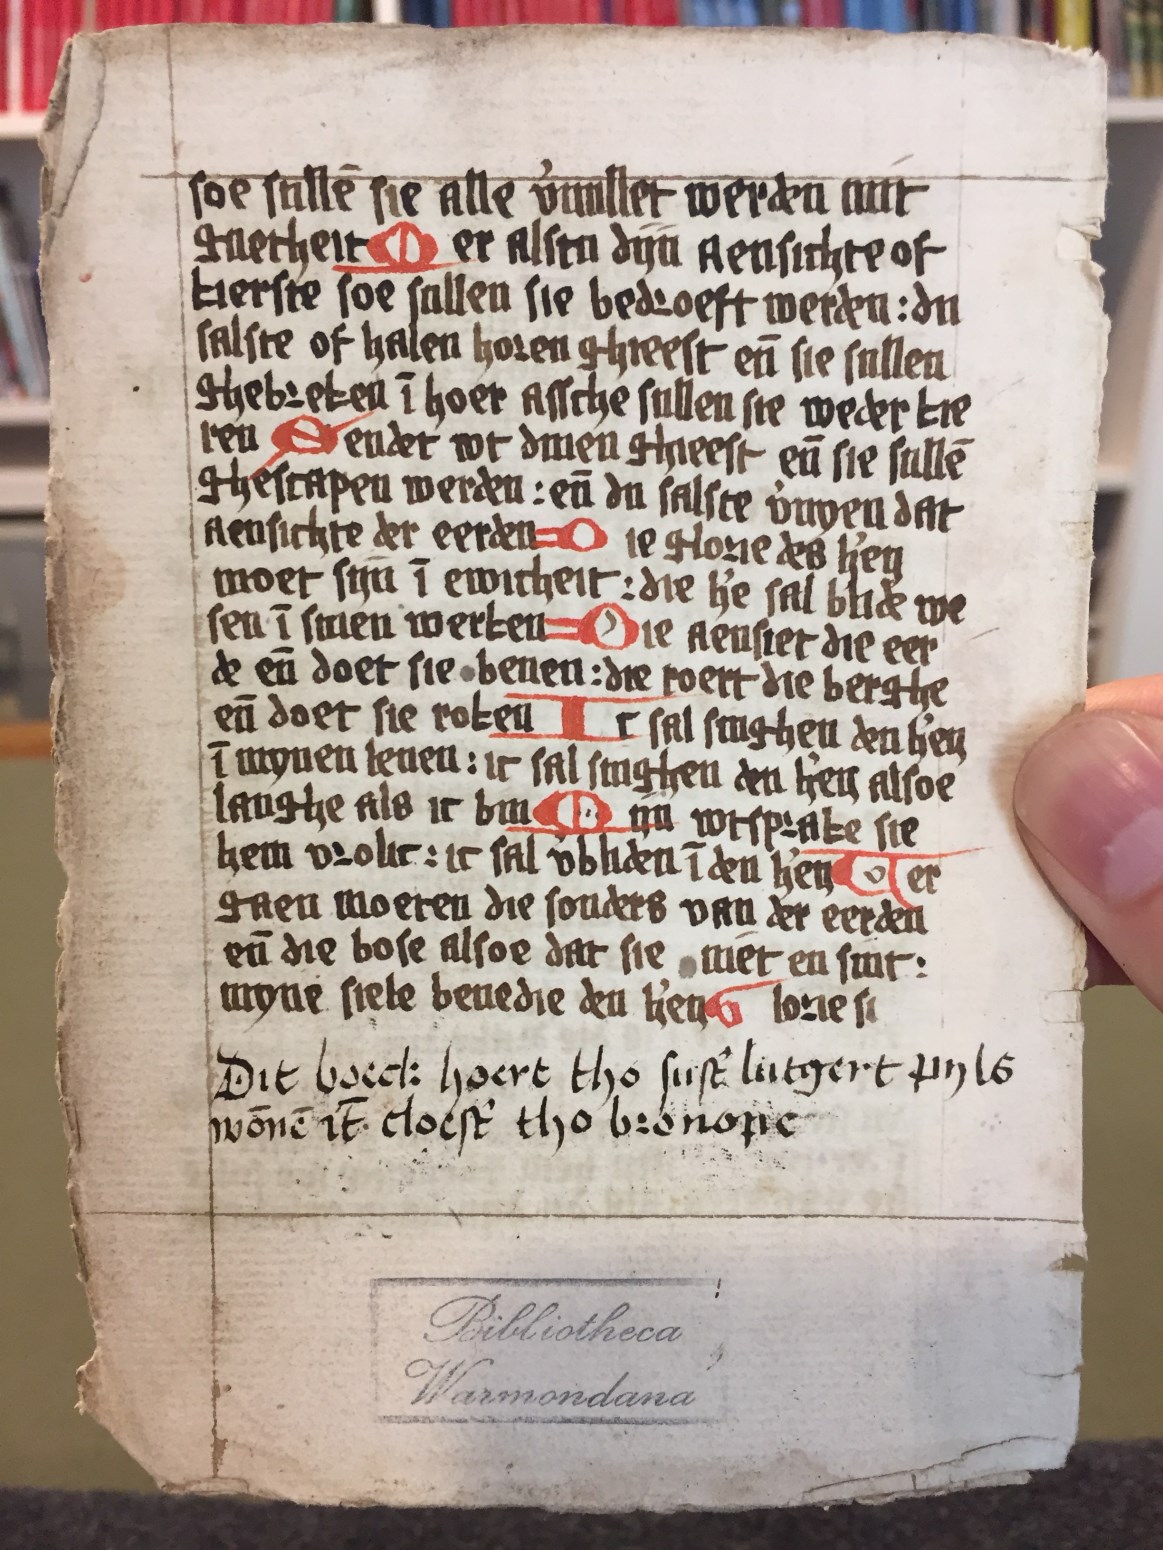 soe sullē sie alle v̓uullet werden mit
guetheit M er alstu dijn aensichte of
kierste soe sullen sie bedroeft werden : du
salste of halen horen gheest en̄ sie sullen
ghebreken ī hoer assche sullen sie weder kie
ren S endet wt dinen gheest en̄ sie sullē
ghescapen werden : en̄ du salste v̓nyen dat
aensichte der eerden = D ie glorie des h̓en
moet sijn ī ewicheit : die h̓e sal blide we
sen ī sinen werken = D ie aensiet die eer
de en̄ doet sie benen : die roert die berghe
en̄ doet sie roken I c sal singhen den h̓en
ī mynen leuen : ic sal singhen den h̓en alsoe
langhe als ic bin M ijn wtsprake sie
hem vrolic : ic sal v̓bliden ī den h̓en V er
gaen moeten die sonders van der eerden
en̄ die bose alsoe dat sie niet en sint :
myne siele benedie den h̓en G lorie si
Dit boeck hoert tho sust̓ lutgert pyls
wōnē īt cloest̓ tho bronope
Bibliotheca
Warmondana